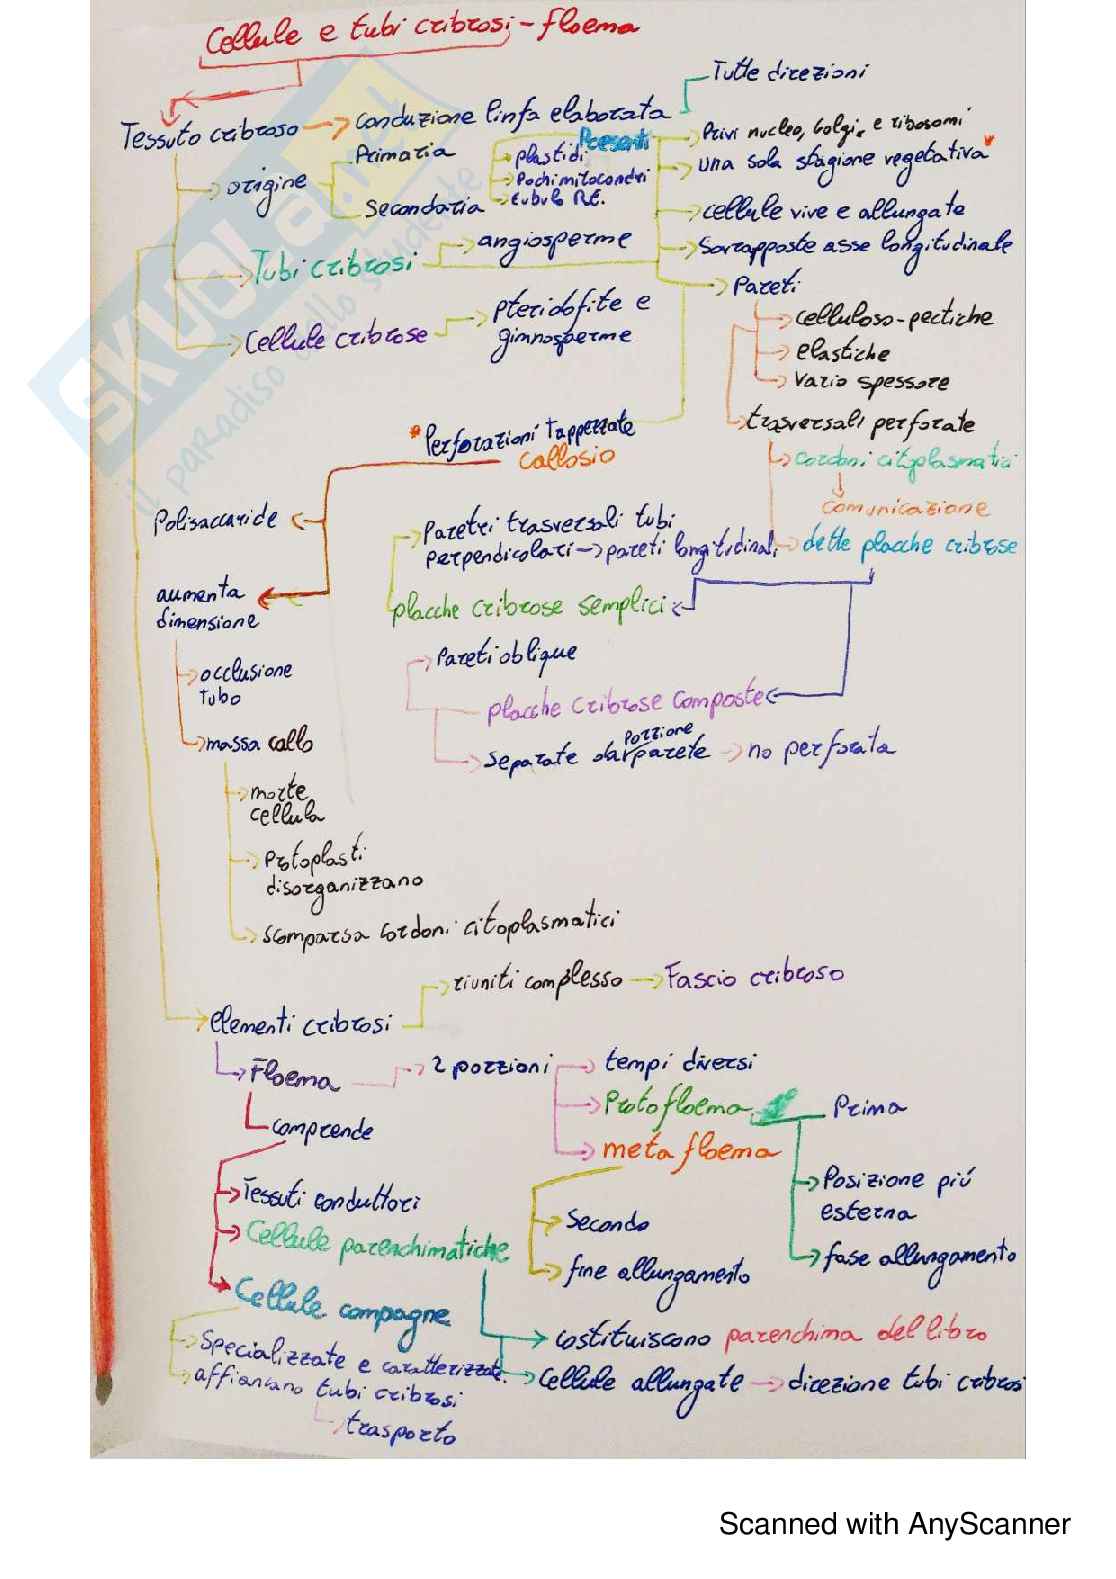 Cellule e tubi cribrosi - floema
Tutte direzioni
Tessuto cribroso
conduzione linfa elaborata
Presenti
Privi nucleo, Golgi, e ribosomi
Primaria
plastidi
una sola stagione vegetativa
origine
Pochi mitocondri
Secondaria
tubulo R.E.
cellule vive e allungate
angiosperme
Sovrapposte asse longitudinale
Tubi cribrosi
Pareti
Pteridofite e
gimnosperme
celluloso-pectiche
Cellule cribrose
elastiche
Vario spessore
Perforazioni tappezzate
trasversali perforate
callosio
cordoni citoplasmatici
comunicazione
Polisaccaride
Paretri trasversali tubi
perpendicolari → pareti longitudinali
dette placche cribrose
aumenta
dimensione
placche cribrose semplici
Pareti oblique
occlusione
tubo
placche cribrose composte
massa callo
Porzione
separate da parete → no perforata
morte
cellula
Protoplasti
disorganizzano
scomparsa cordoni citoplasmatici
riuniti complesso → Fascio cribroso
elementi cribrosi
Floema
2 porzioni
tempi diversi
Protofloema
Prima
comprende
metafloema
Posizione più
esterna
Tessuti conduttori
Secondo
Cellule parenchimatiche
fase allungamento
fine allungamento
Cellule compagne
costituiscono parenchima del libro
Specializzate e caratterizzate
affiancano tubi cribrosi
Cellule allungate → direzione tubi cribrosi
trasporto
SKUOLA.net
il paradiso dello studente
Scanned with AnyScanner